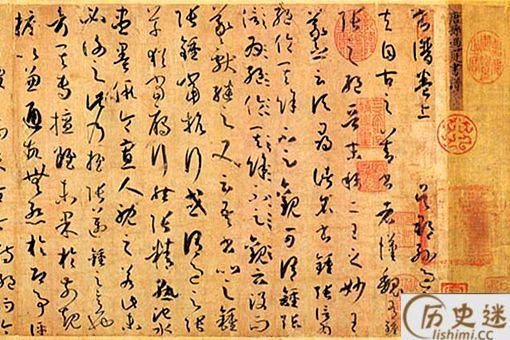 唐孫過庭書譜
書譜卷上 吳郡孫過
夫自古之善書者漢魏有鍾
張之絕晉末稱二王之妙王
羲之云頃尋諸名書鍾張信為
絕倫其餘不足觀可謂鍾張
云沒而
羲獻繼之又云吾書比之鍾
張鍾當抗行或謂過之張
草猶當雁行然張精熟池水
盡墨假令寡人耽之若此未
必謝之此乃推張邁鍾之意也
考其專擅雖未果於前規
摭以兼通故無慚於即事評
历史迷
lishimi.cc